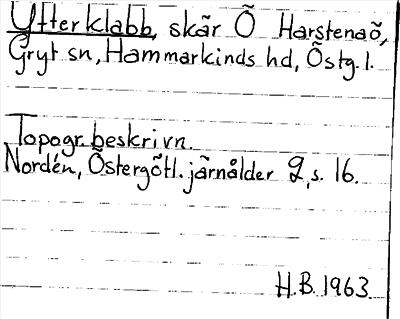 Ytterklabb, skär Ö Harstenaö,
Gryt sn, Hammarkinds hd, Östg. l.
Topogr. beskrivn.
Nordén, Östergötl. järnålder 2, s. 16.
H.B. 1963